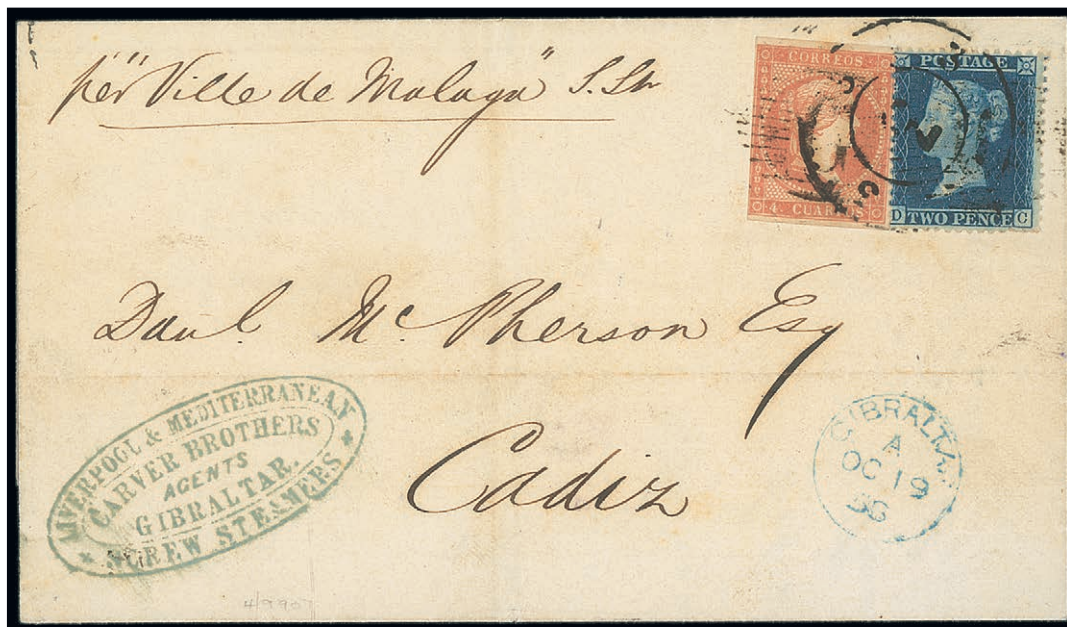 per "Ville de Malaga" S. Str
CORREOS
4 CUARTOS
POSTAGE
D TWO PENCE C
Danl. McPherson Esq
Cadiz
LIVERPOOL & MEDITERRANEAN
CARVER BROTHERS
AGENTS
GIBRALTAR.
* SCREW STEAMERS *
GIBRALTAR
A
OC 19
56